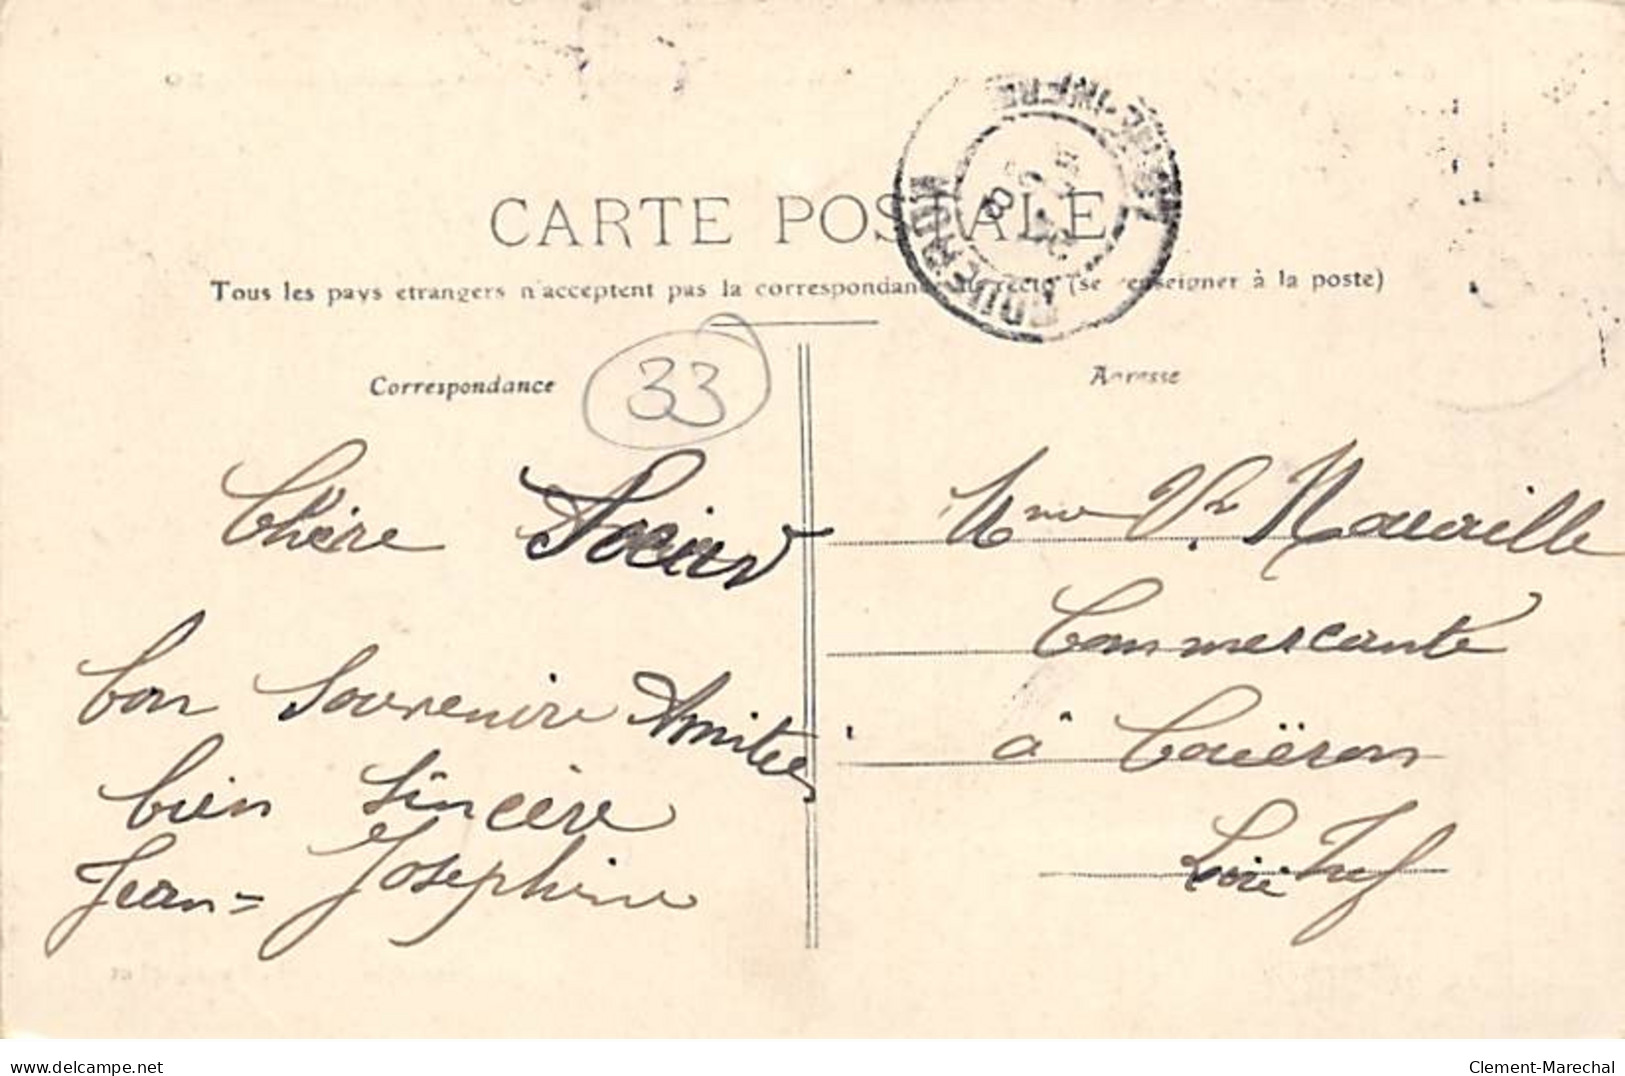 CARTE POSTALE
Tous les pays etrangers n'acceptent pas la correspondance au recto (se renseigner à la poste)
Correspondance
33
Adresse
Chère Sœur
bon Souvenire Amitiés
bien Sincère
Jean = Josephine
Mme Vve Navaille
Commerçante
à Couëron
Loire Inf
LOIRE-INFRE
delcampe.net
Clement-Marechal